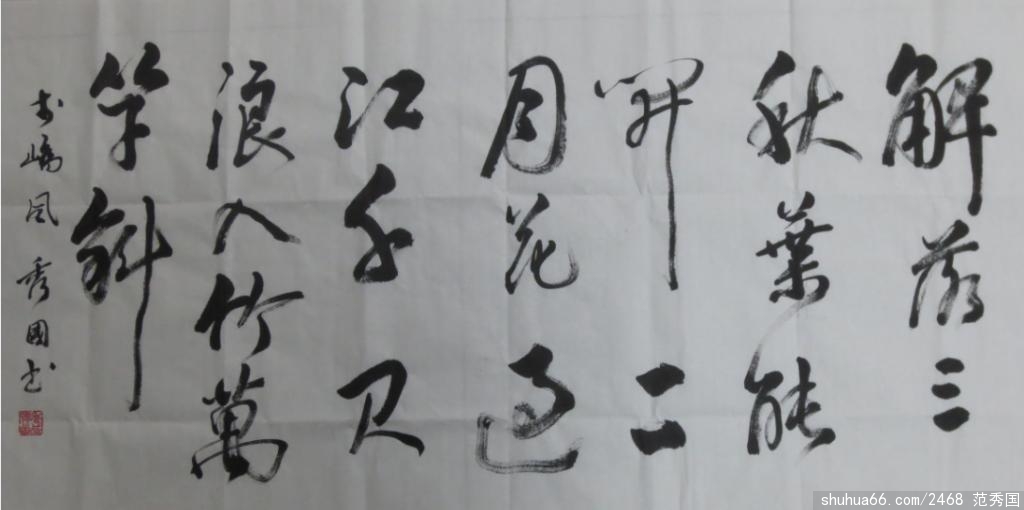 解落三
秋葉能
開二
月花過
江千尺
浪入竹萬
竿斜
李嶠風 秀國書
shuhua66.com/2468 范秀国